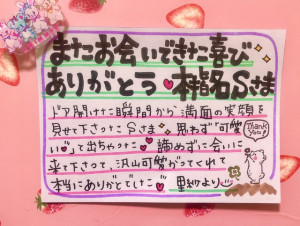 またお会いできた喜び
ありがとう 椎名Sさま
ドア開けた瞬間から満面の笑顔を
見せて下さったSさま 思わず"可愛
い"って出ちゃった 諦めずに会いに
来て下さって、沢山可愛がってくれて
本当にありがとでした 里紗より
Thank
you!